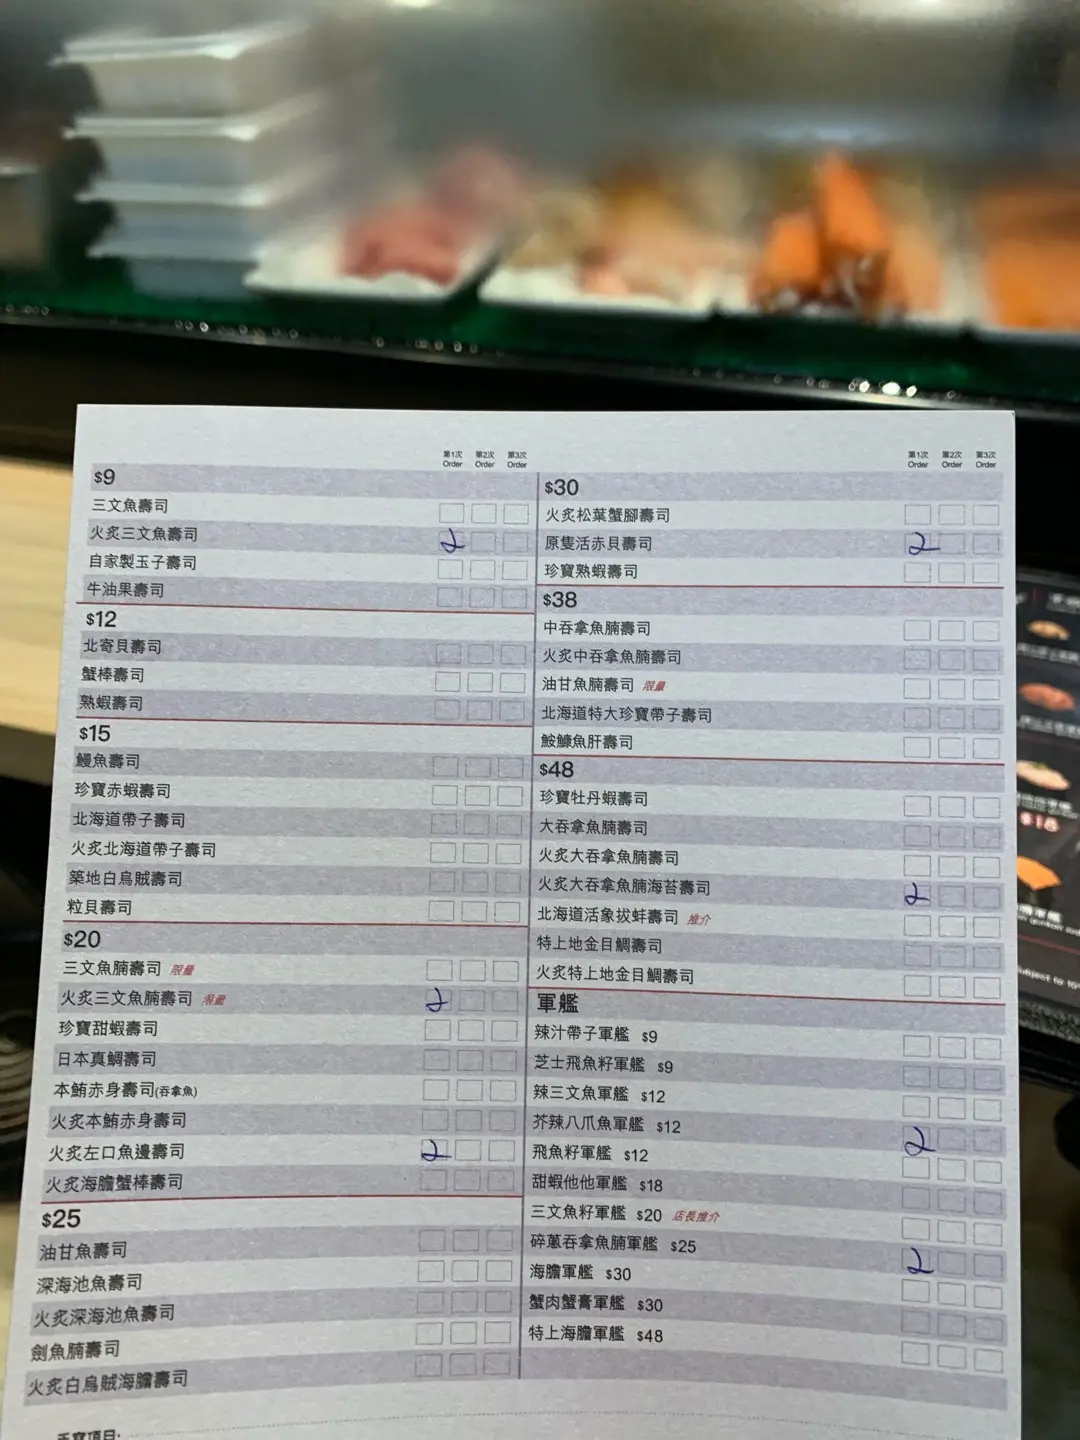 第1次 第2次 第3次
Order Order Order
$9
三文魚壽司
火炙三文魚壽司 2
自家製玉子壽司
牛油果壽司
$12
北寄貝壽司
蟹棒壽司
熟蝦壽司
$15
鰻魚壽司
珍寶赤蝦壽司
北海道帶子壽司
火炙北海道帶子壽司
築地白烏賊壽司
粒貝壽司
$20
三文魚腩壽司 限量
火炙三文魚腩壽司 限量 2
珍寶甜蝦壽司
日本真鯛壽司
本鮪赤身壽司(吞拿魚)
火炙本鮪赤身壽司
火炙左口魚邊壽司 2
火炙海膽蟹棒壽司
$25
油甘魚壽司
深海池魚壽司
火炙深海池魚壽司
劍魚腩壽司
火炙白烏賊海膽壽司
第1次 第2次 第3次
Order Order Order
$30
火炙松葉蟹腳壽司
原隻活赤貝壽司 2
珍寶熟蝦壽司
$38
中吞拿魚腩壽司
火炙中吞拿魚腩壽司
油甘魚腩壽司 限量
北海道特大珍寶帶子壽司
鮟鱇魚肝壽司
$48
珍寶牡丹蝦壽司
大吞拿魚腩壽司
火炙大吞拿魚腩壽司
火炙大吞拿魚腩海苔壽司 2
北海道活象拔蚌壽司 推介
特上地金目鯛壽司
火炙特上地金目鯛壽司
軍艦
辣汁帶子軍艦 $9
芝士飛魚籽軍艦 $9
辣三文魚軍艦 $12
芥辣八爪魚軍艦 $12 2
飛魚籽軍艦 $12
甜蝦他他軍艦 $18
三文魚籽軍艦 $20 店長推介
碎蔥吞拿魚腩軍艦 $25 2
海膽軍艦 $30
蟹肉蟹膏軍艦 $30
特上海膽軍艦 $48
手寫項目:
$18